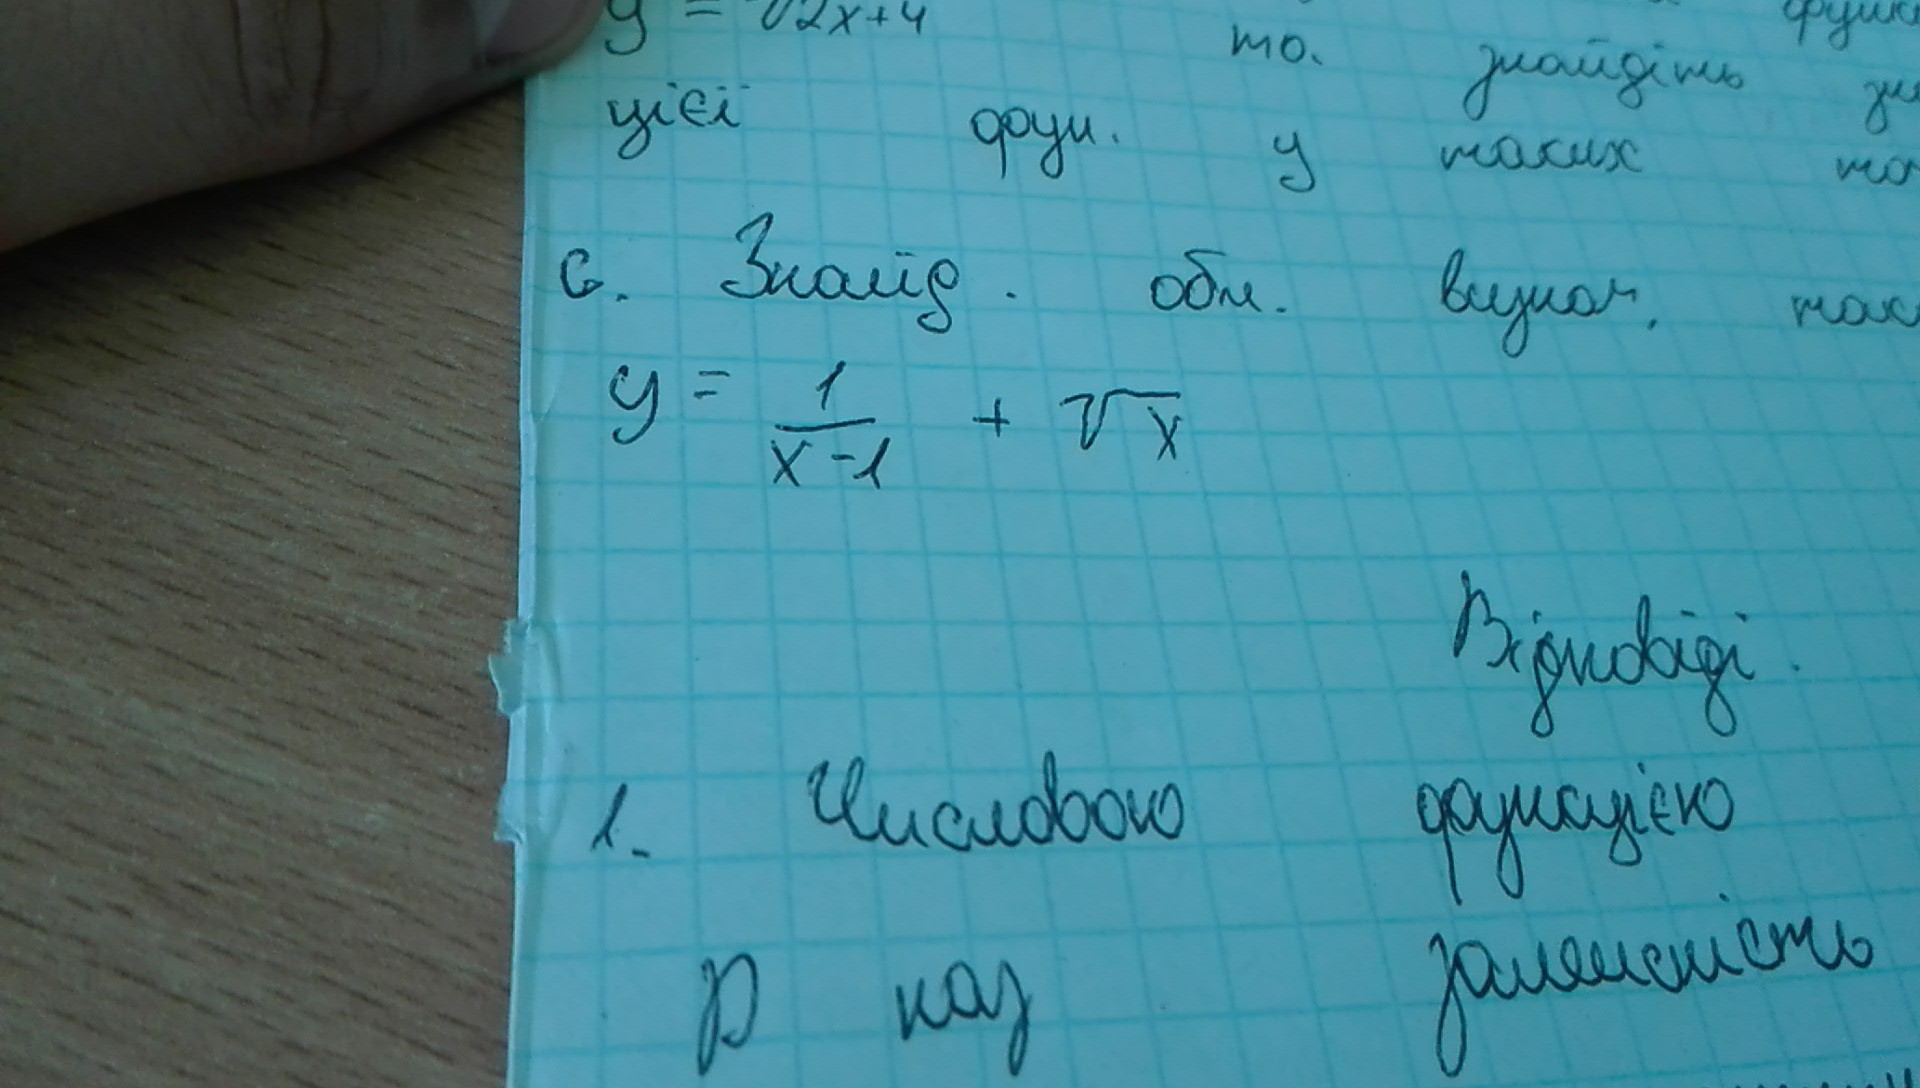 y = √2x+4 то. знайдіть
цієї фун. у таких
6. Знайд. обл. визнач. так
y = 1/(x-1) + √x
Відповіді.
1. Числовою функцією
D наз залежність